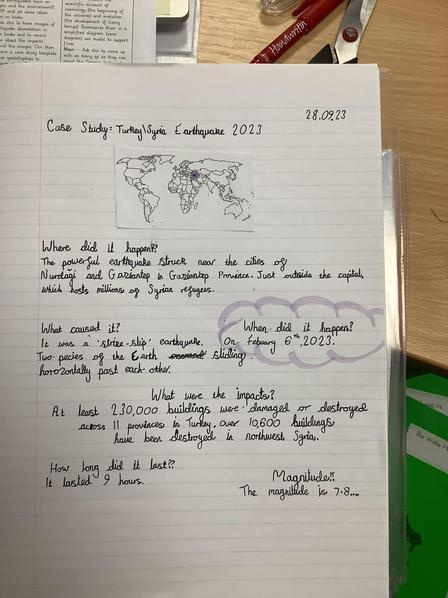 scientific account of
cosmology (the beginning of
the universe) and evolution
(the development of living
beings). Summarise them in a
simplified diagram.
Handwriting
28.09.23
Case Study: Turkey\Syria Earthquake 2023
Where did it happen?
The powerful earthquake struck near the cities of
Nurdaği and Gaziantep in Gaziantep Province. Just outside the capital,
which hosts millions of Syrian refugees.
What caused it?
It was a 'strike-slip' earthquake.
Two pecies of the Earth sliding
horozontally past each-other.
When did it happen?
On Febuary 6th 2023.
What were the impacts?
At least 230,000 buildings were damaged or destroyed
across 11 provinces in Turkey, over 10,600 buildings
have been destroyed in northwest Syria.
How long did it last??
It lasted 9 hours.
Magnitude!!
The magnitude is 7.8....